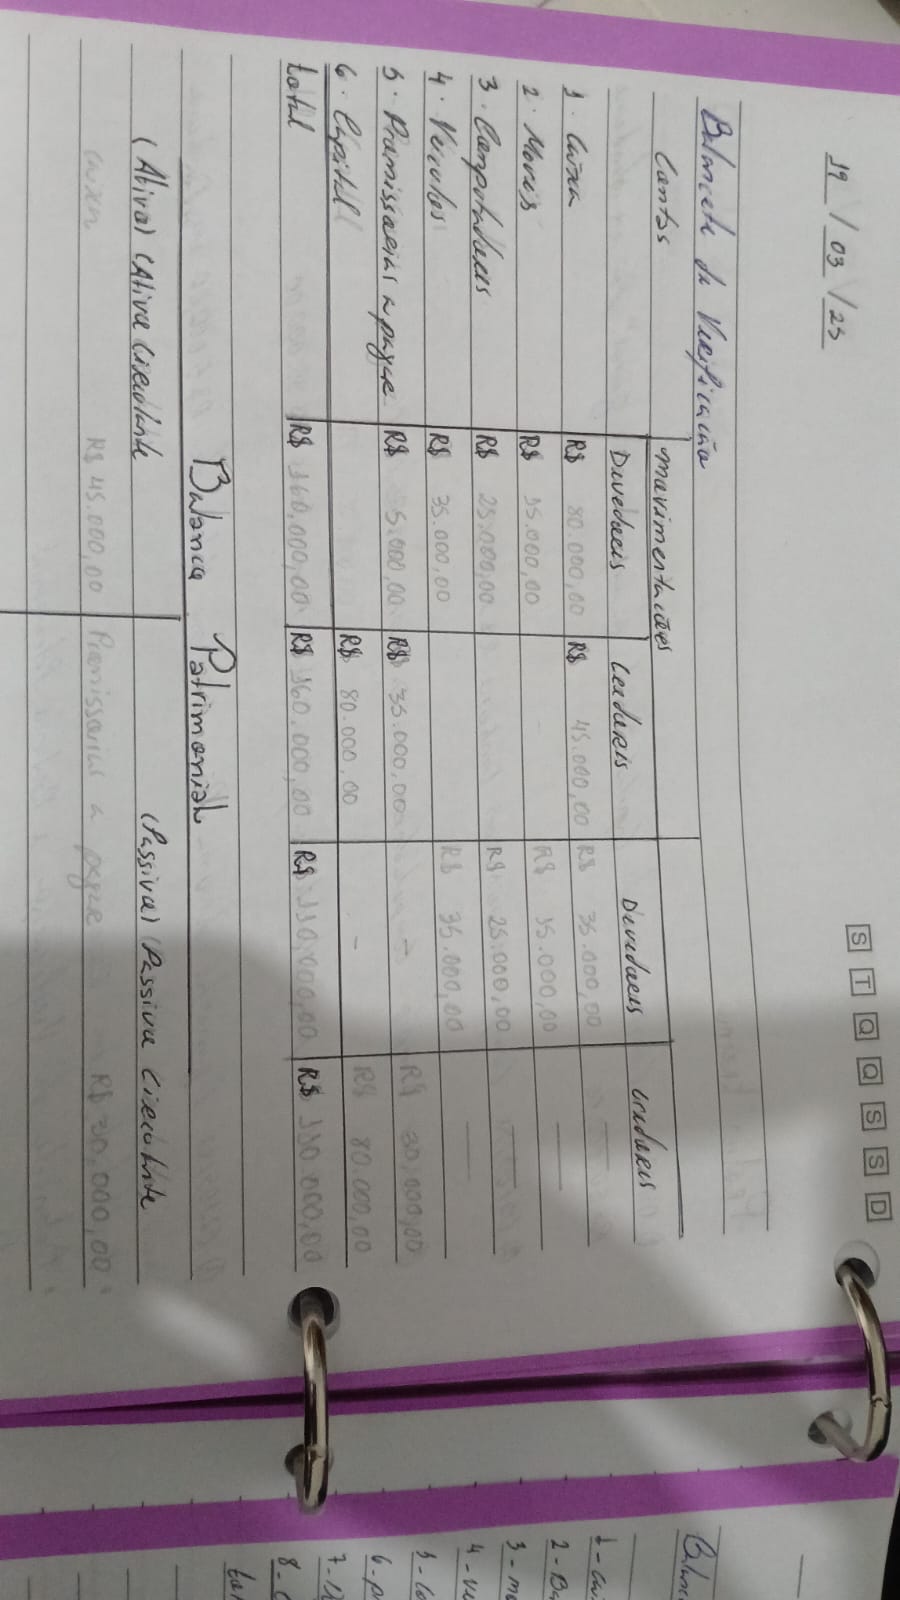 S T Q Q S S D
19 / 03 / 25
Balancete de Verificação
Contas movimentações
Devedores Credores Devedores Credores
1. Caixa R$ 80.000,00 R$ 45.000,00 R$ 35.000,00 —
2. Moveis R$ 15.000,00 - R$ 15.000,00 —
3. Computadores R$ 25.000,00 R$ 25.000,00 —
4. Veiculos R$ 35.000,00 R$ 35.000,00 —
5. Promissorias a pagar R$ 5.000,00 R$ 35.000,00 - R$ 30.000,00
6. Capital R$ 80.000,00 - R$ 80.000,00
total R$ 160.000,00 R$ 160.000,00 R$ 110.000,00 R$ 110.000,00
Balanço Patrimonial
(Ativo) (Ativo Circulante (Passivo) Passivo Circulante
caixa R$ 45.000,00 Promissorias a pagar R$ 30.000,00